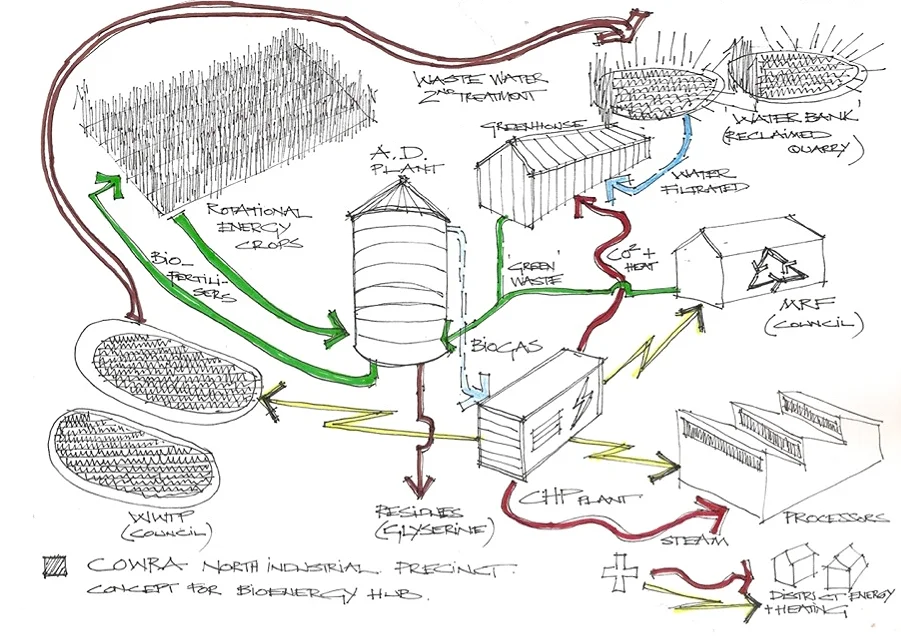 WASTE WATER
2ND TREATMENT
'WATER BANK'
(RECLAIMED
QUARRY)
GREENHOUSE
A.D.
PLANT
WATER
FILTRATED
ROTATIONAL
ENERGY
CROPS
BIO-
FERTILI-
SERS
'GREEN'
WASTE
CO2+
HEAT
MRF
(COUNCIL)
BIOGAS
CHP PLANT
PROCESSORS
STEAM
WWTP
(COUNCIL)
RESIDUES
(GLYSERINE)
COWRA NORTH INDUSTRIAL PRECINCT.
CONCEPT FOR BIOENERGY HUB.
DISTRICT ENERGY
+ HEATING